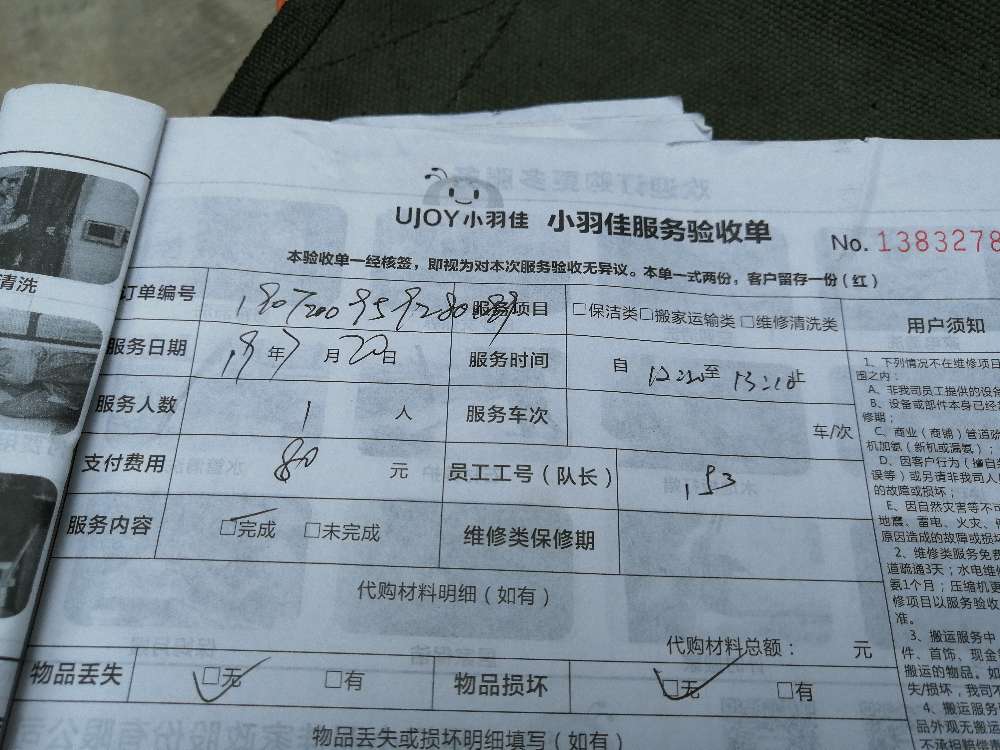 清洗
UJOY小羽佳 小羽佳服务验收单
No. 1383278
本验收单一经核签，即视为对本次服务验收无异议。本单一式两份，客户留存一份（红）
订单编号 服务项目 □保洁类□搬家运输类□维修清洗类
服务日期 19年7月22日 服务时间 自 12:30至 13:10止
服务人数 1 人 服务车次 车/次
支付费用 80 元 员工工号（队长） 153
服务内容 □完成 □未完成 维修类保修期
代购材料明细（如有）
代购材料总额： 元
物品丢失 □无 □有 物品损坏 □无 □有
物品丢失或损坏明细填写（如有）
用户须知
1、下列情况不在维修项目
围之内：
A、非我司员工提供的设备
B、设备或部件本身已经
修期；
C、商业（商铺）管道疏
机加氨（新机或漏氨）；
D、因客户行为（擅自
误等）或另请非我司人
的故障或损坏；
E、因自然灾害等不可
地震、雷电、火灾、
原因造成的故障或损坏
2、维修类服务免费
道疏通3天；水电维
氨1个月；压缩机更
修项目以服务验收
准。
3、搬运服务中
件、首饰、现金
搬运的物品。如
失/损坏，我司不
4、搬运服务
品外观无搬运
不承担赔偿责